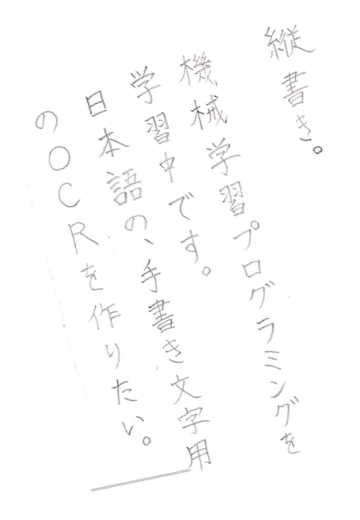 縦書き。
機械学習プログラミングを
学習中です。
日本語の、手書き文字用
のOCRを作りたい。